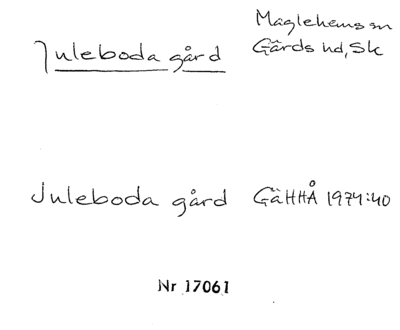 Maglehems sn
Juleboda gård Gärds hd, Sk
Juleboda gård GäHHÅ 1974:40
Nr 17061